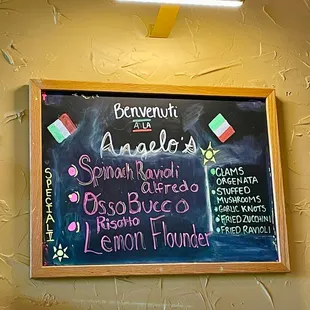 Benvenuti
A LA
Angelo's
SPECIALI
Spinach Ravioli
alfredo
Osso Bucco
Risotto
Lemon Flounder
CLAMS
ORGENATA
STUFFED
MUSHROOMS
GARLIC KNOTS
FRIED ZUCCHINI
FRIED RAVIOLI